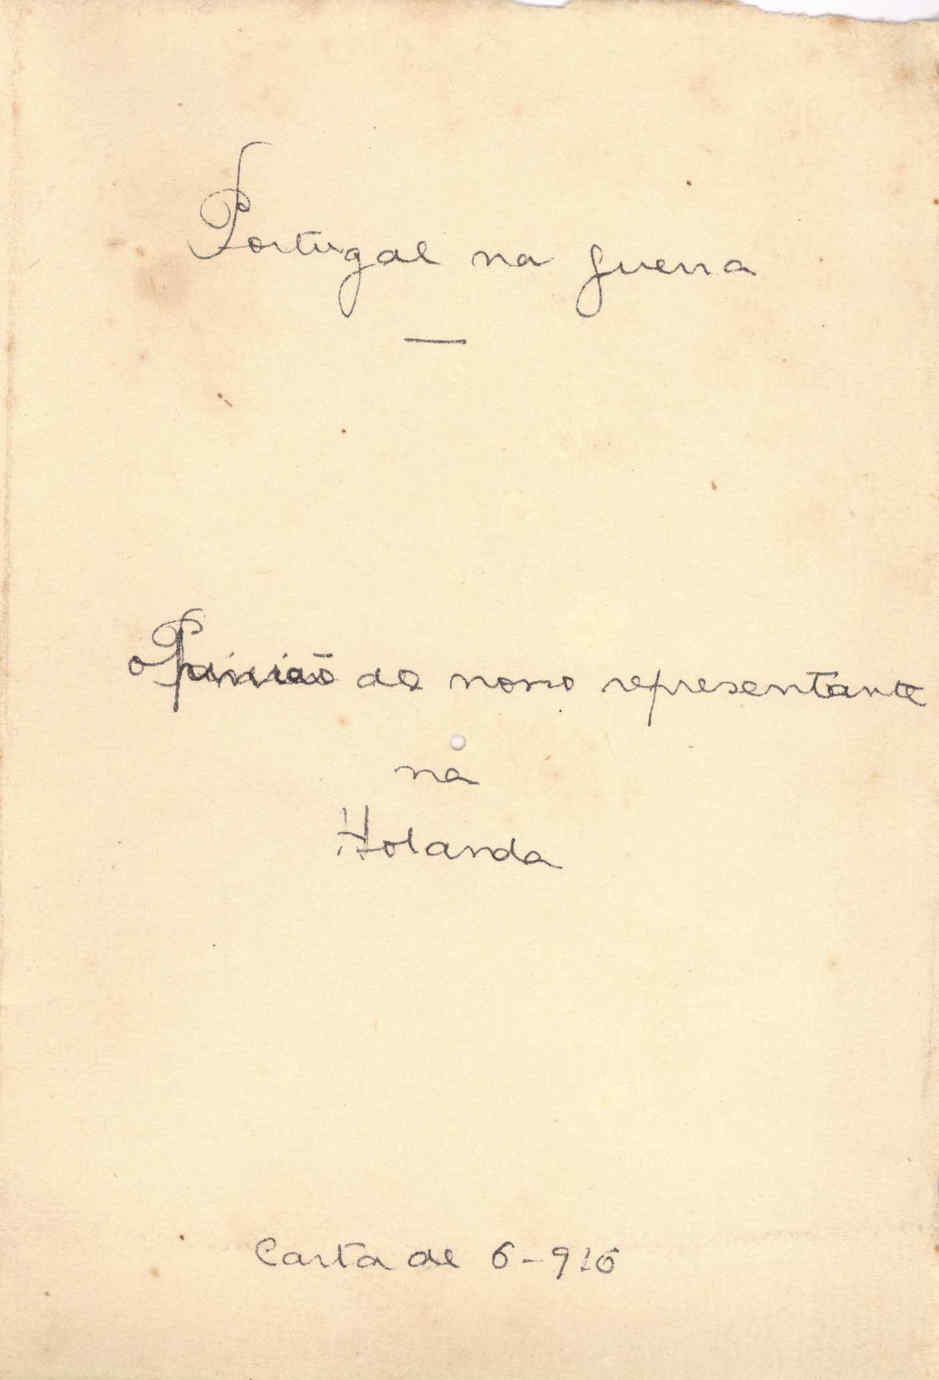 Portugal na guerra
—
opinião do nosso representante
na
Holanda
Carta de 6-916